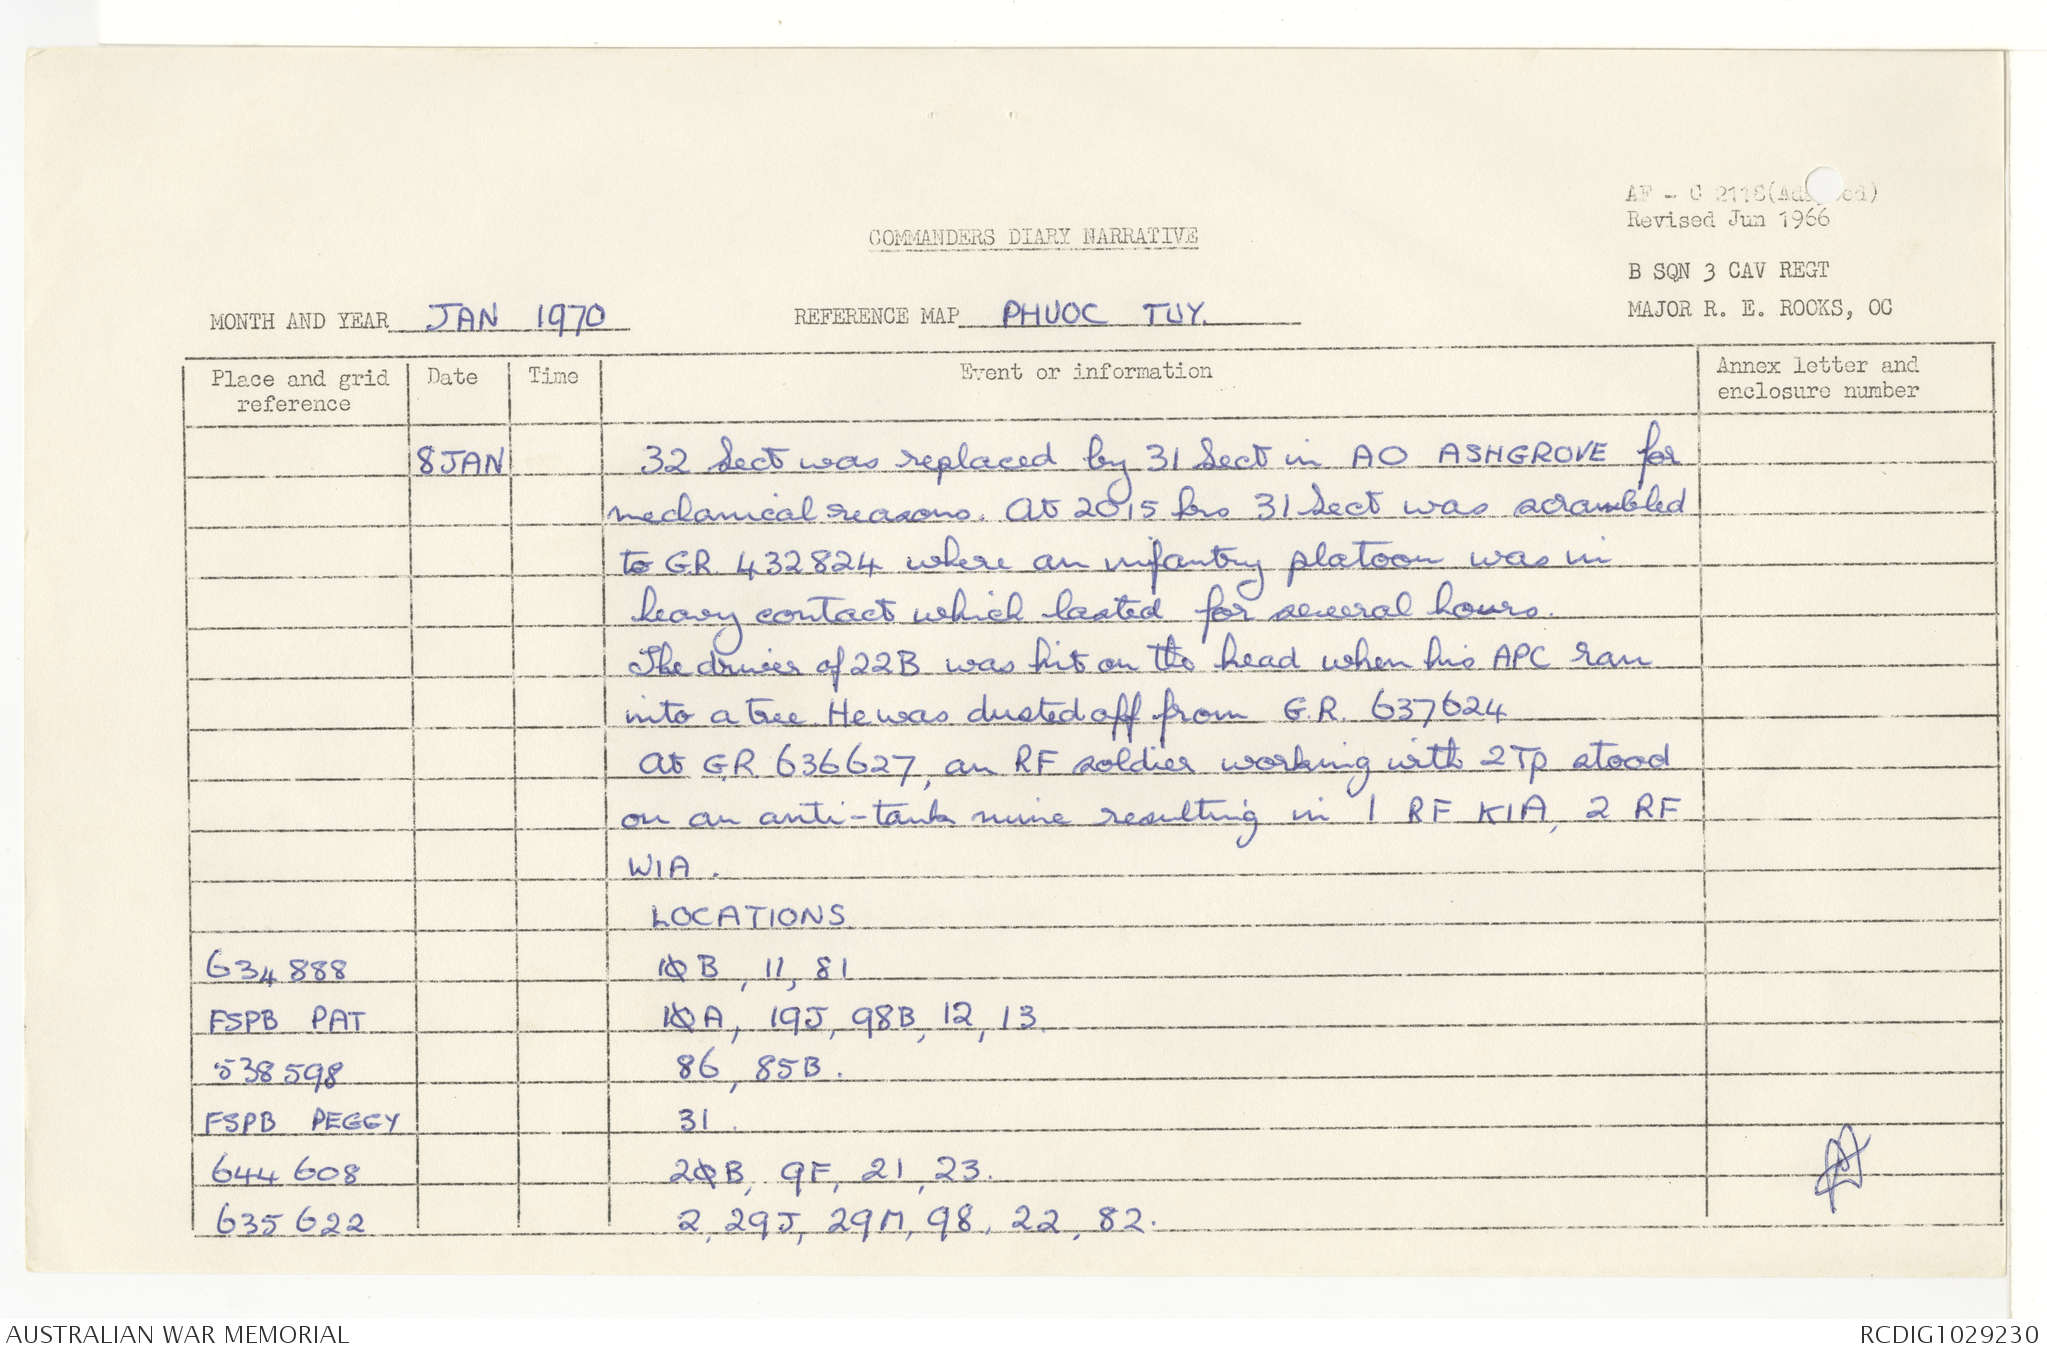 AF - C 2118(Adapted)
Revised Jun 1966
COMMANDERS DIARY NARRATIVE
B SQN 3 CAV REGT
MAJOR R. E. ROOKS, OC
MONTH AND YEAR JAN 1970
REFERENCE MAP PHUOC TUY.
Place and grid reference Date Time Event or information Annex letter and enclosure number
8 JAN 32 Sect was replaced by 31 Sect in AO ASHGROVE for
mechanical reasons. At 2015 hrs 31 Sect was scrambled
to GR 432824 where an infantry platoon was in
heavy contact which lasted for several hours.
The driver of 22B was hit on the head when his APC ran
into a tree He was dusted off from G.R. 637624
At G.R. 636627, an RF soldier working with 2 Tp stood
on an anti-tank mine resulting in 1 RF KIA, 2 RF
WIA.
LOCATIONS
634888 1ØB, 11, 81
FSPB PAT 1ØA, 19J, 98B, 12, 13.
538598 86, 85B.
FSPB PEGGY 31.
644608 2ØB, 9F, 21, 23.
635622 2, 29J, 29M, 98, 22, 82.
AUSTRALIAN WAR MEMORIAL
RCDIG1029230